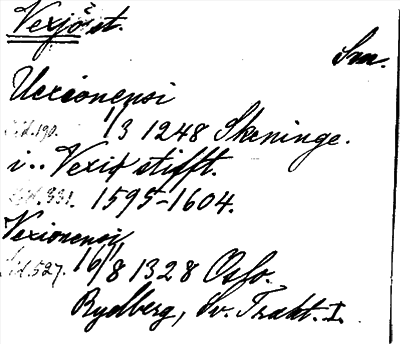 Vexjö st.
Sm.
Uexionensi
Sid. 190. 1/3 1248 Skeninge.
i.. Vexiö stifft.
Sid. 331. 1595-1604.
Vexionensi
Sid. 527. 16/8 1328 Oslo.
Rydberg, Sv. Trakt. I.